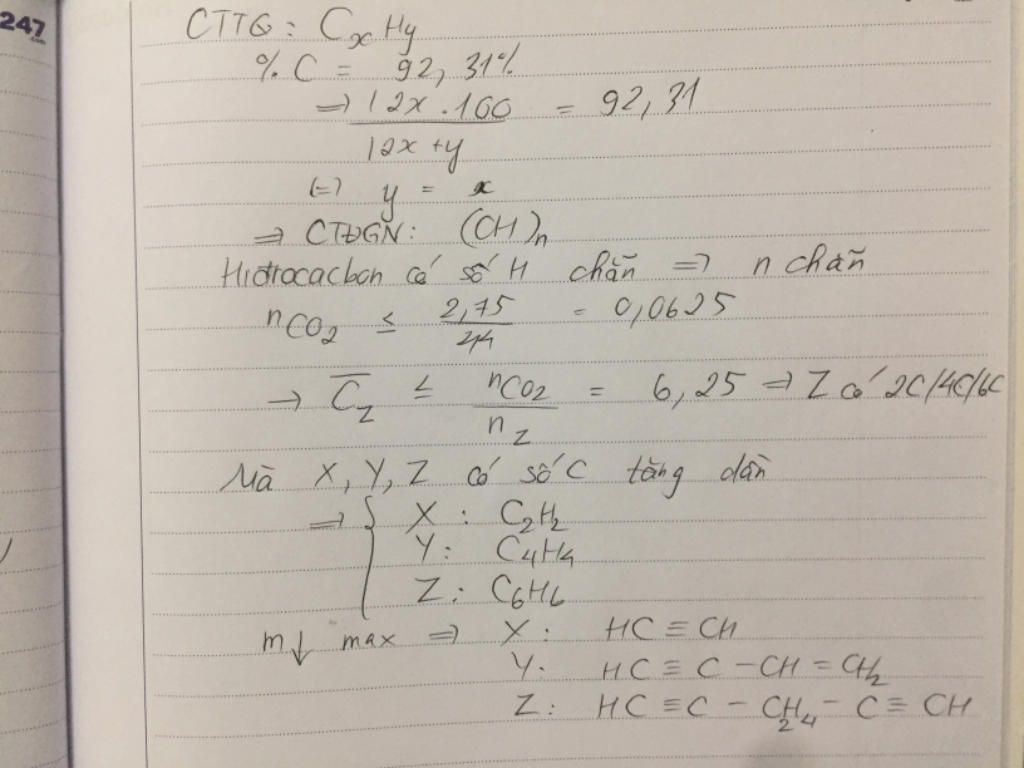 247
CTTQ: CxHy
% C = 92,31%
=> 12x.100 / 12x+y = 92,31
(=) y = x
=> CTĐGN: (CH)n
Hiđrocacbon có số H chẵn => n chẵn
nCO2 ≤ 2,75/44 = 0,0625
→ C̅Z ≤ nCO2/nZ = 6,25 => Z có 2C/4C/6C
Mà X, Y, Z có số C tăng dần
=> { X : C2H2
Y: C4H4
Z: C6H6
m↓ max => X: HC ≡ CH
Y: HC ≡ C - CH = CH2
Z: HC ≡ C - C2H4 - C ≡ CH